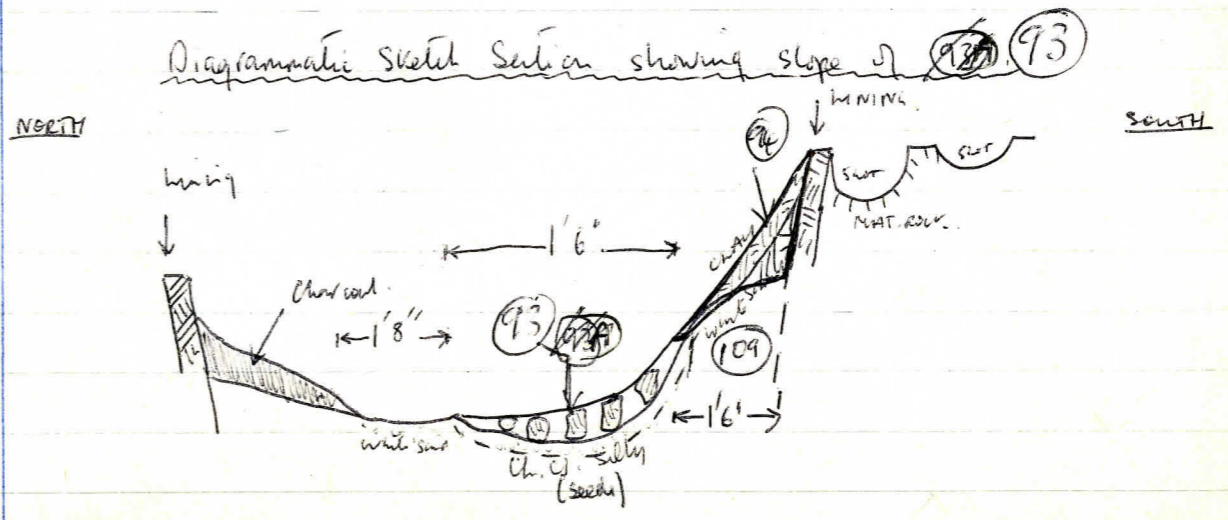 Diagrammatic Sketch Section showing slope of 93
LINING.
NORTH
SOUTH
94
Lining
SLOT
SLOT
NAT. ROCK.
1'6"
CLAY
Charcoal.
1'8"
93
White Sand
109
1'6"
White Sand
Ch. Cl. Silty
(seeds)